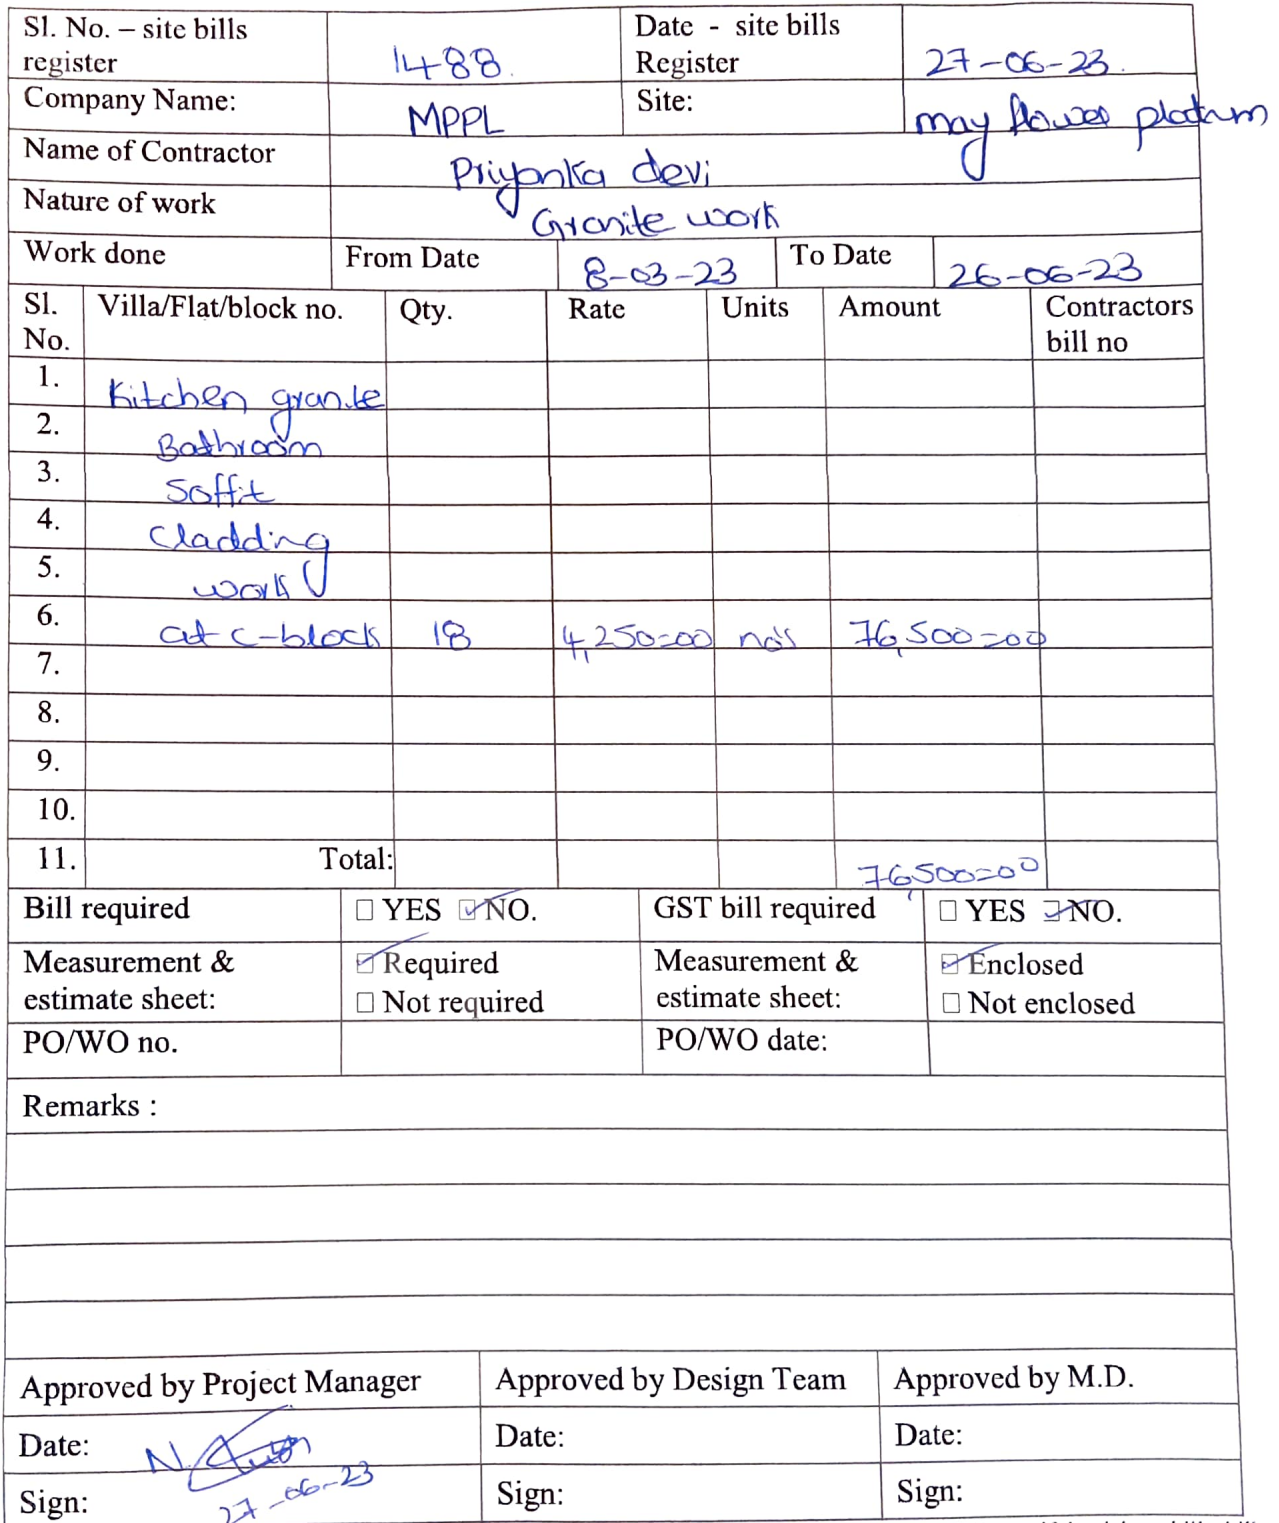 Sl. No. – site bills register 1488. Date - site bills Register 27-06-23.
Company Name: MPPL Site: may flower platinum
Name of Contractor Priyanka devi
Nature of work Granite work
Work done From Date 8-03-23 To Date 26-06-23
Sl. No. Villa/Flat/block no. Qty. Rate Units Amount Contractors bill no
1. Kitchen granite
2. Bathroom
3. Soffit
4. Cladding
5. work
6. at c-block 18 4,250=00 no's 76,500=00
7.
8.
9.
10.
11. Total: 76,500=00
Bill required ☐ YES ☑ NO. GST bill required ☐ YES ☑ NO.
Measurement & estimate sheet: ☑ Required ☐ Not required Measurement & estimate sheet: ☑ Enclosed ☐ Not enclosed
PO/WO no. PO/WO date:
Remarks :
Approved by Project Manager Approved by Design Team Approved by M.D.
Date: Date: Date:
Sign: 27-06-23 Sign: Sign: